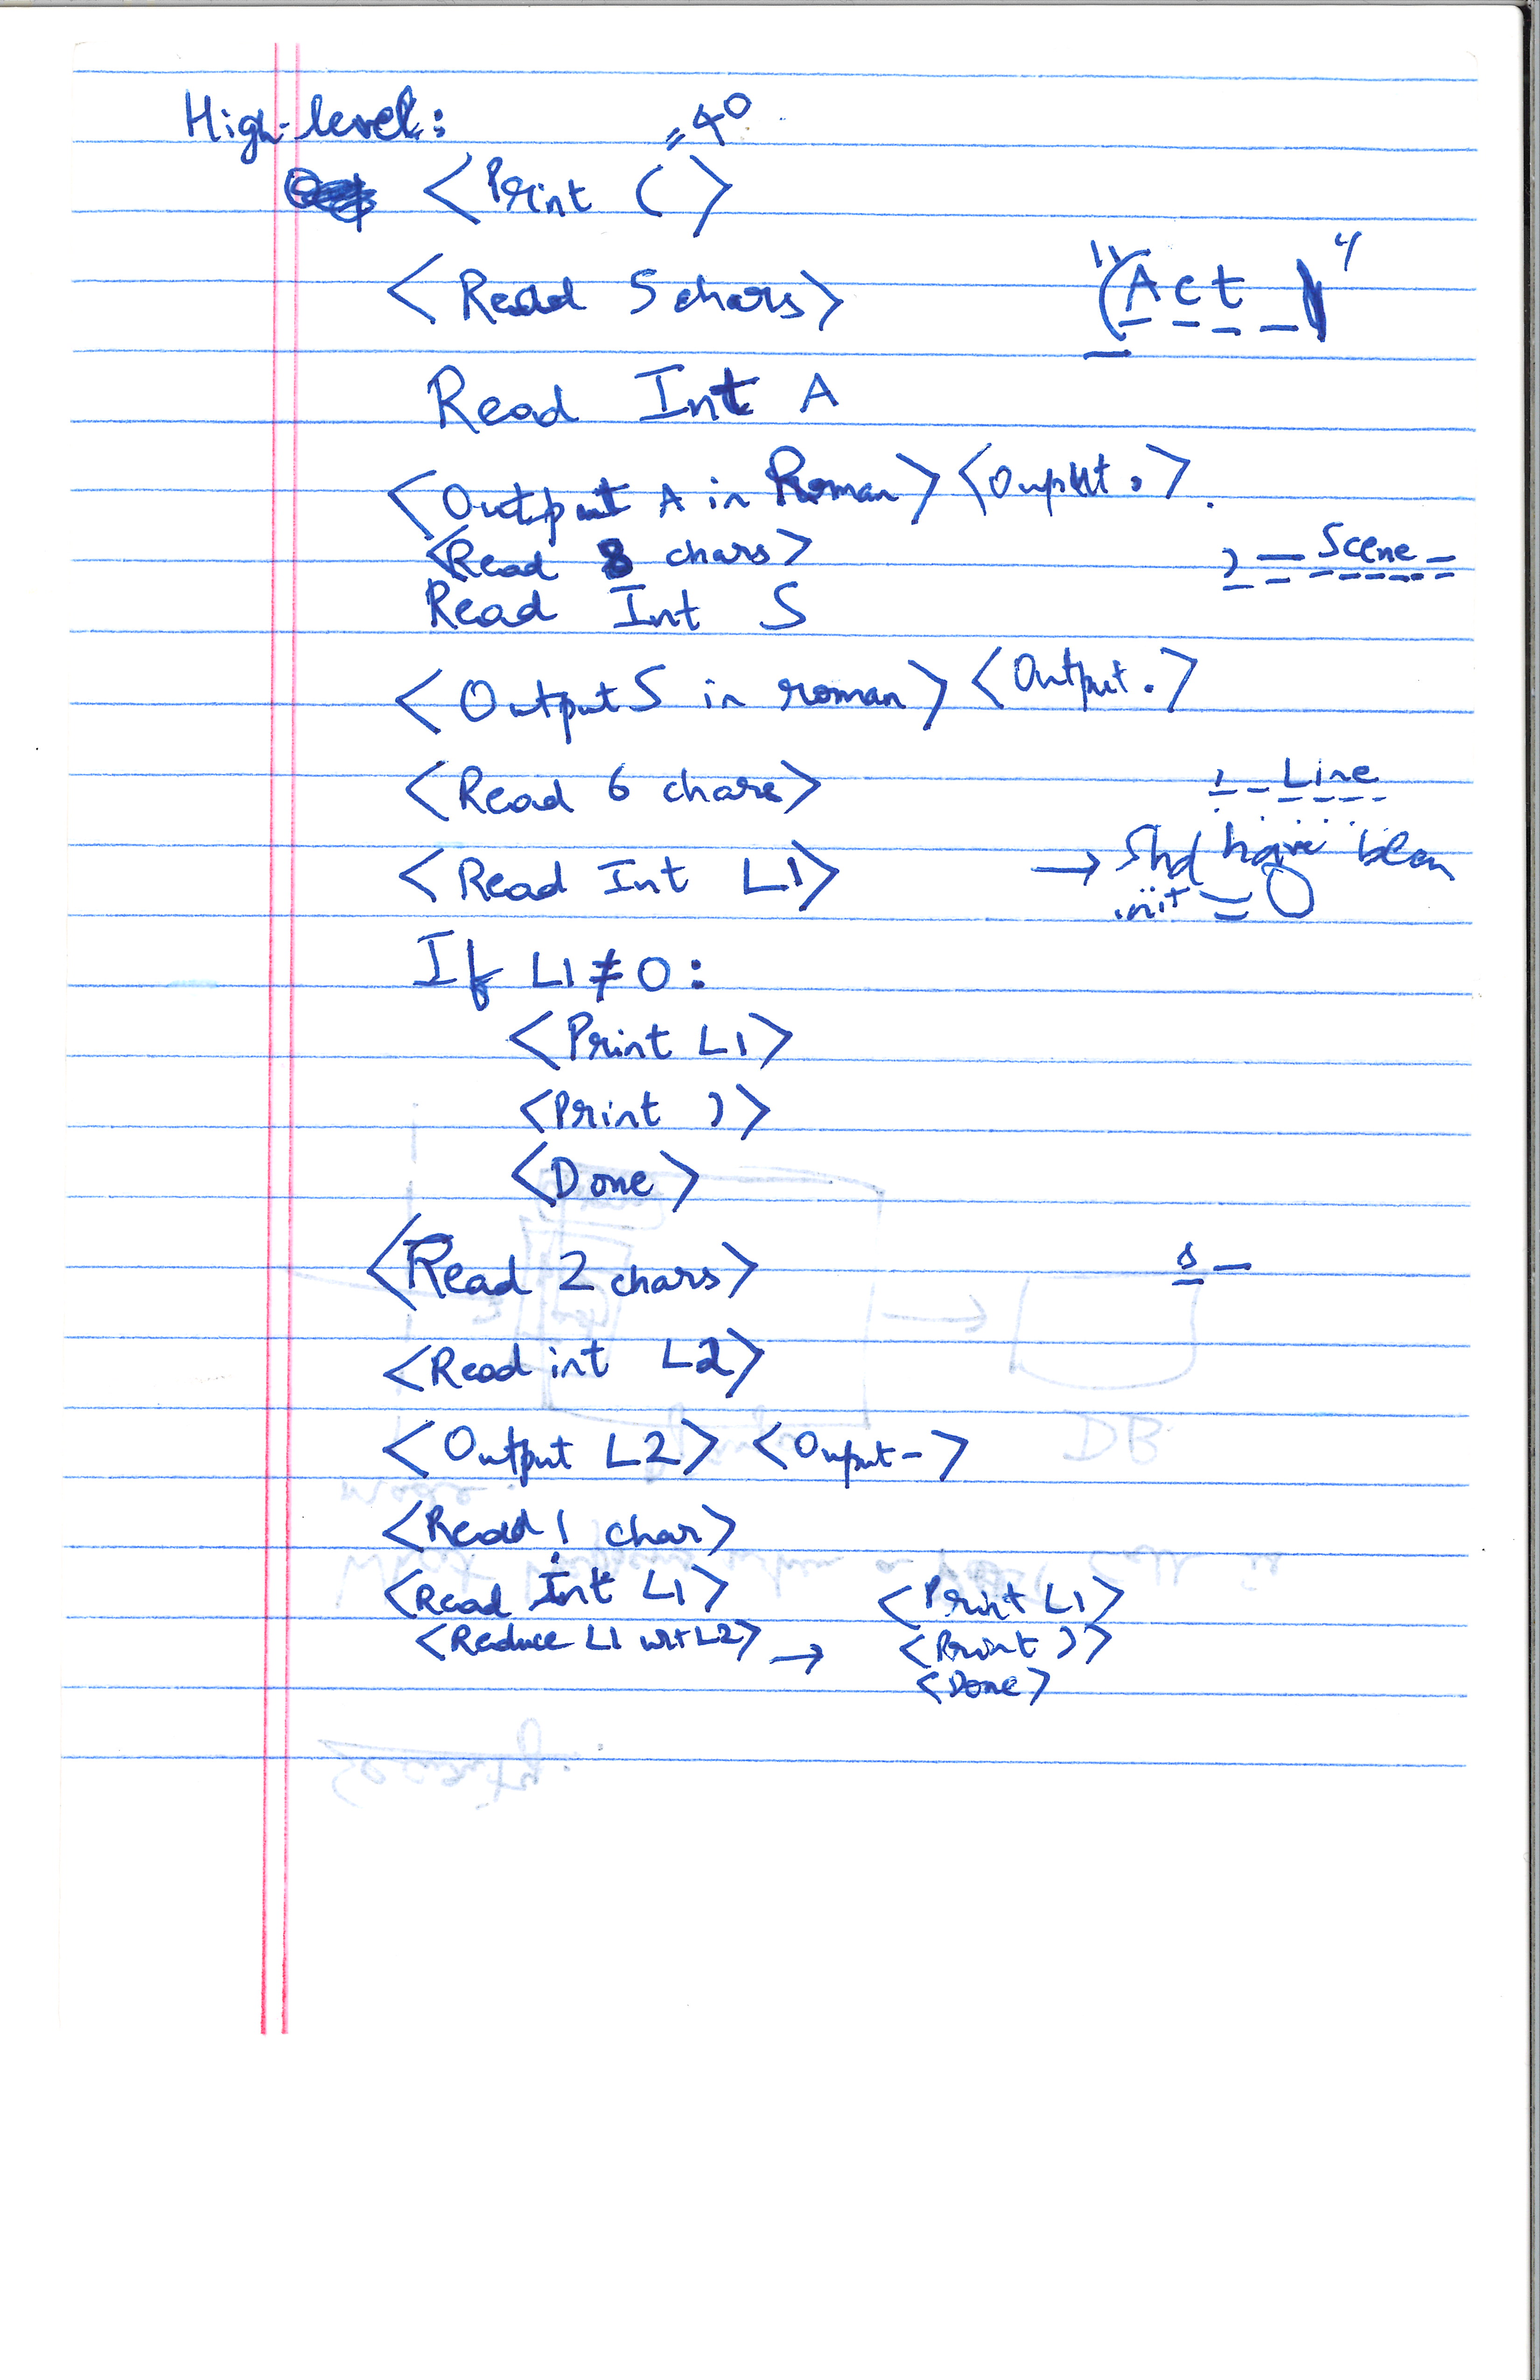 High-level:
=40
<Print ( >
<Read 5 chars> "(Act )"
Read Int A
<Output A in Roman> <Ouput .>
<Read 8 chars> ) Scene
Read Int S
<Output S in roman> <Output .>
<Read 6 chars> , Line
<Read Int L1> → Shd have been
init = 0
If L1 ≠ 0:
<Print L1>
<Print )>
<Done>
<Read 2 chars> s
<Read int L2>
<Output L2> <Ouput ->
<Read 1 char>
<Read Int L1> <Print L1>
<Reduce L1 wrt L2> → <Print )>
<Done>